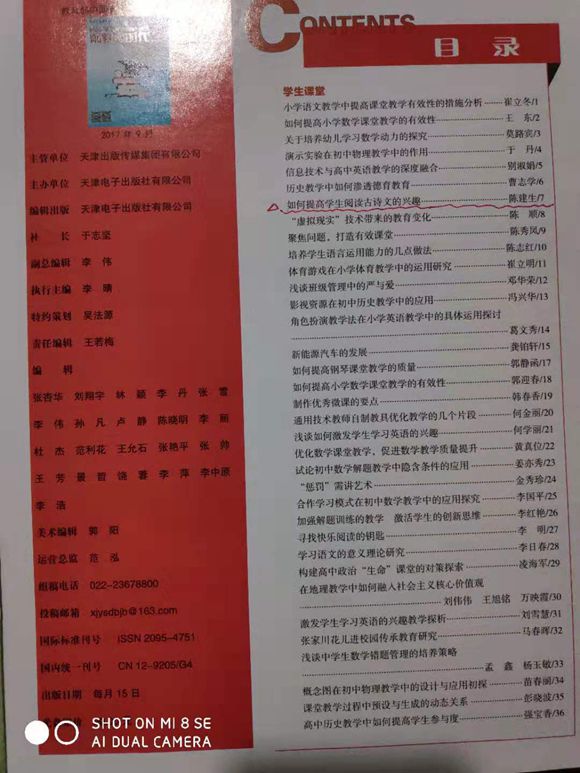 CONTENTS
目 录
2017 年 9 月
主管单位 天津出版传媒集团有限公司
主办单位 天津电子出版社有限公司
编辑出版 天津电子出版社有限公司
社 长 于志坚
副总编辑 李 伟
执行主编 李 晴
特约策划 吴法源
责任编辑 王若梅
编 辑
张杏华 刘翔宇 林 颖 李 丹 张 雪
李 伟 孙 凡 卢 静 陈晓明 李 丽
杜 杰 范利花 王允石 张艳平 张 帅
王 芳 景 哲 饶 蓉 李 萍 李中原
李 浩
美术编辑 郭 阳
运营总监 范 泓
组稿电话 022-23678800
投稿邮箱 xjysdbjb@163.com
国际标准刊号 ISSN 2095-4751
国内统一刊号 CN 12-9205/G4
出版日期 每月 15 日
学生课堂
小学语文教学中提高课堂教学有效性的措施分析 崔立冬/1
如何提高小学数学课堂教学的有效性 王 东/2
关于培养幼儿学习数学动力的探究 莫路宾/3
演示实验在初中物理教学中的作用 于 丹/4
信息技术与高中英语教学的深度融合 别淑娟/5
历史教学中如何渗透德育教育 曹志学/6
如何提高学生阅读古诗文的兴趣 陈建生/7
“虚拟现实”技术带来的教育变化 陈 顺/8
聚焦问题,打造有效课堂 陈秀凤/9
培养学生语言运用能力的几点做法 陈志红/10
体育游戏在小学体育教学中的运用研究 崔立明/11
浅谈班级管理中的严与爱 邓华荣/12
影视资源在初中历史教学中的应用 冯兴华/13
角色扮演教学法在小学英语教学中的具体运用探讨
葛文秀/14
新能源汽车的发展 龚铂轩/15
如何提高钢琴课堂教学的质量 郭静函/17
如何提高小学数学课堂教学的有效性 郭迎春/18
制作优秀微课的要点 韩春香/19
通用技术教师自制教具优化教学的几个片段 何金丽/20
浅谈如何激发学生学习英语的兴趣 何学丽/21
优化数学课堂教学,促进数学教学质量提升 黄真位/22
试论初中数学解题教学中隐含条件的应用 姜亦秀/23
“惩罚”需讲艺术 金秀珍/24
合作学习模式在初中数学教学中的应用探究 李国平/25
加强解题训练的教学 激活学生的创新思维 李红艳/26
寻找快乐阅读的钥匙 李 明/27
学习语文的意义理论研究 李日春/28
构建高中政治“生命”课堂的对策探索 凌海军/29
在地理教学中如何融入社会主义核心价值观
刘伟伟 王旭铭 万映霞/30
激发学生学习英语的兴趣教学探析 刘雪慧/31
张家川花儿进校园传承教育研究 马春晖/32
浅谈中学生数学错题管理的培养策略
孟 鑫 杨玉敏/33
概念图在初中物理教学中的设计与应用初探 苗春丽/34
课堂教学过程中预设与生成的动态关系 彭晓波/35
高中历史教学中如何提高学生参与度 强宝香/36
SHOT ON MI 8 SE
AI DUAL CAMERA